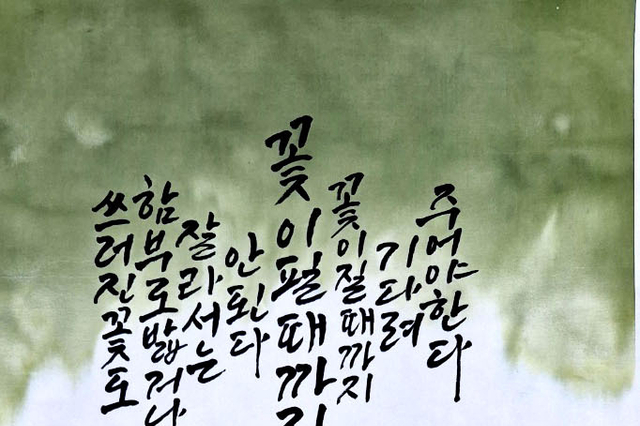 쓰러진꽃도
함부로밟거나
잘라서는
안된다
꽃이필때까지
꽃이질때까지
기다려
주어야한다